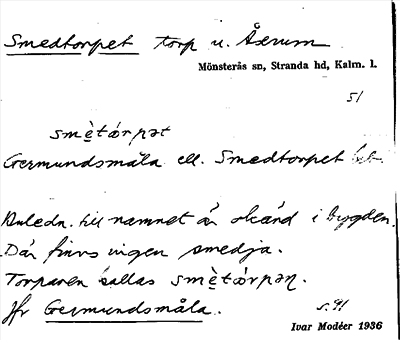 Smedtorpet torp u. Åserum
Mönsterås sn, Stranda hd, Kalm. l.
51
smètórpət
Germundsmåla ell. Smedtorpet
Anledn. till namnet är okänd i bygden.
Där finns ingen smedja.
Torparen kallas smètórpən.
Jfr Germundsmåla.
s. 91
Ivar Modéer 1936